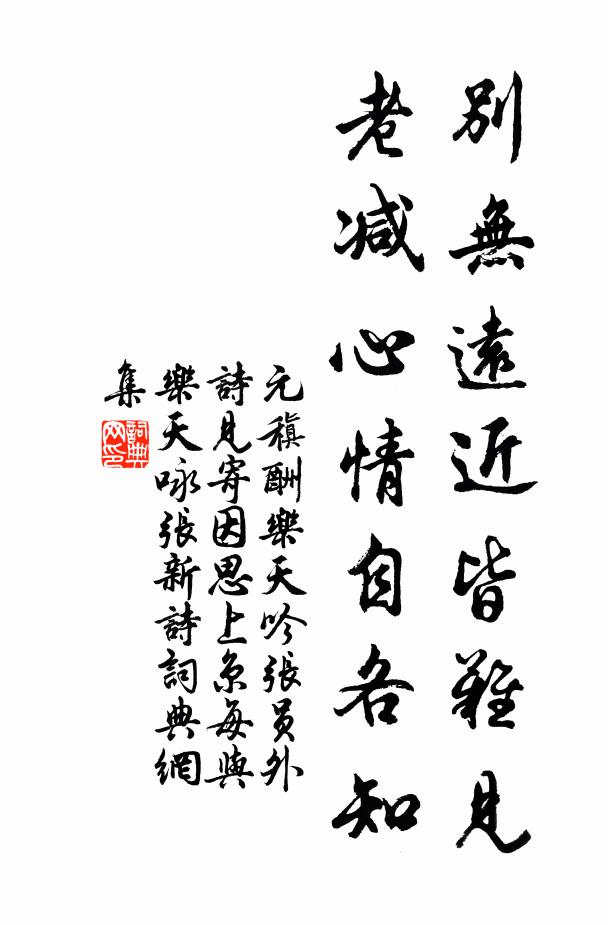 別無遠近皆難見
老減心情自各知
元稹酬樂天吟張員外
詩見寄因思上京每與
樂天咏張新詩詞典網
集
詞典
网印